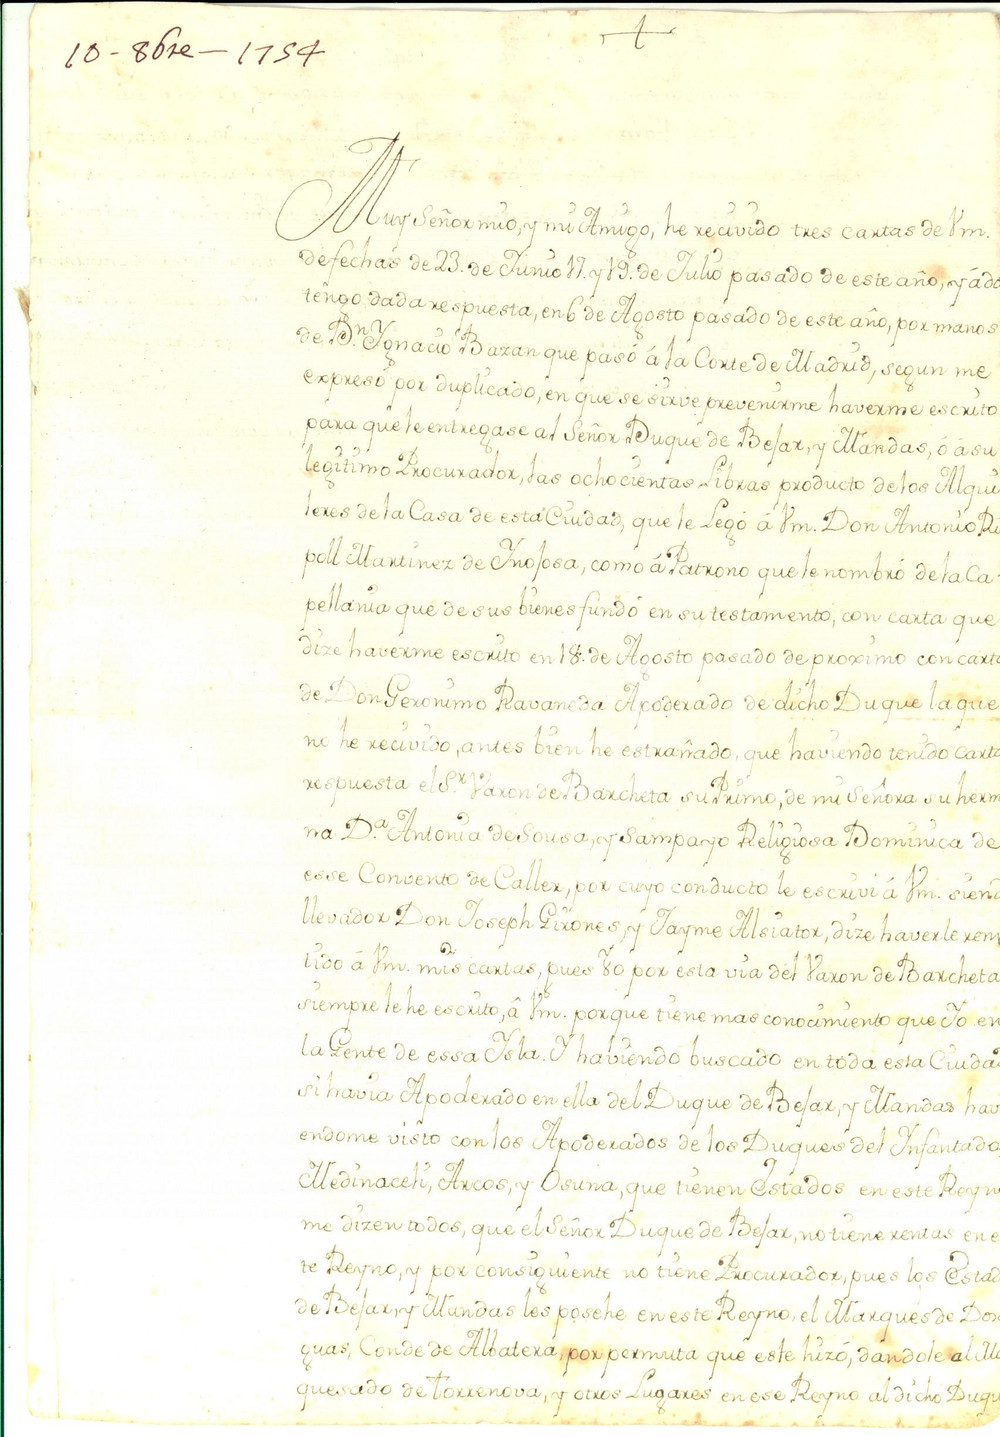 10 - 8bre - 1754
Muy Señor mio, y mi Amigo, he recivido tres cartas de Vm.
de fechas de 23. de Junio 17. y 19. de Julio pasado de este año, y á do
tengo dada respuesta, en 6 de Agosto pasado de este año, por manos
de Dn. Ygnacio Bazan que pasó á la Corte de Madrid, segun me
expresó por duplicado, en que se sirve prevenirme haverme escrito
para que le entregase al Señor Duque de Befar, y Mandas, ó á su
legitimo Procurador, las ochocientas Libras producto de los Alqui
leres de la Casa de esta Ciudad, que le Legó á Vm. Don Antonio Ri
poll Martinez de Ynofosa, como á Patrono que le nombró de la Ca-
pellania que de sus bienes fundó en su testamento, con carta que
dize haverme escrito en 18. de Agosto pasado de proximo con carta
de Don Geronimo Ravaneda Apoderado de dicho Duque la que
ni he recivido, antes bien he estrañado, que haviendo tenido carta
respuesta el Sr. Varon de Barcheta su Primo, de mi Señora su herm
na Da. Antonia de Sousa, y Sampayo Religiosa Dominica de
esse Convento de Caller, por cuyo conducto le escrivi á Vm. siend
llevador Don Joseph Girones, y Jayme Alsiator, dize haverle remi
tido á Vm. mis cartas, pues Yo por esta via del Varon de Barcheta
siempre le he escrito, á Vm. porque tiene mas conocimiento que Yo en
la Gente de essa Isla. Y haviendo buscado en toda esta Ciudad
si havia Apoderado en ella del Duque de Befar, y Mandas havi
endome visto con los Apoderados de los Duques del Infantado,
Medinaceli, Arcos, y Osuna, que tienen Estados en este Reyno
me dizen todos, que el Señor Duque de Befar, no tiene rentas en e
te Reyno, y por consiguiente no tiene Procurador, pues los Estad
de Befar, y Mandas les posehe en este Reyno, el Marques de Dos
guas, Conde de Albatera, por permuta que este hizó, dandole al Ma
quesado de Torrenova, y otros Lugares en ese Reyno al dicho Duqu